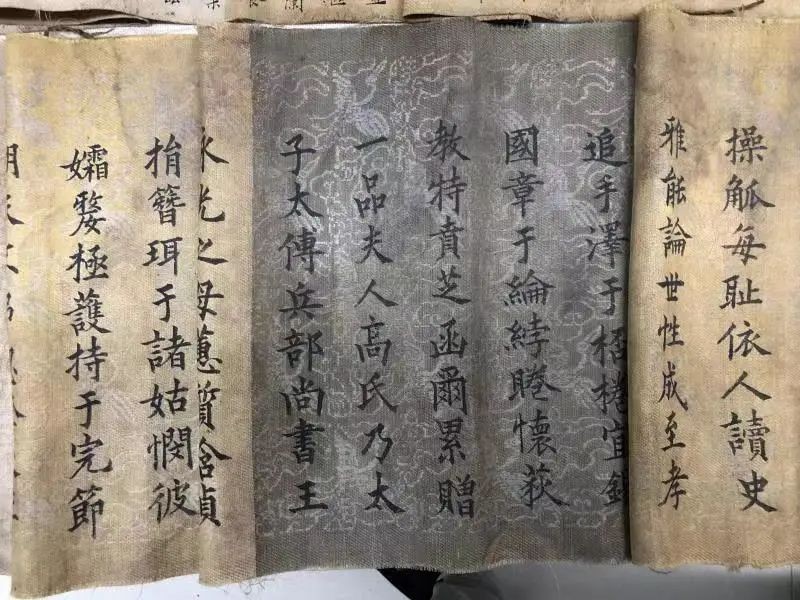 操觚每耻依人讀史
雅能論世性成至孝
追手澤于桮棬宜錫
國章于綸綍睠懷荻
教特賁芝函爾累贈
一品夫人高氏乃太
子太傅兵部尚書王
永光之母蕙質含貞
捐簪珥于諸姑憫彼
孀嫠極護持于完節